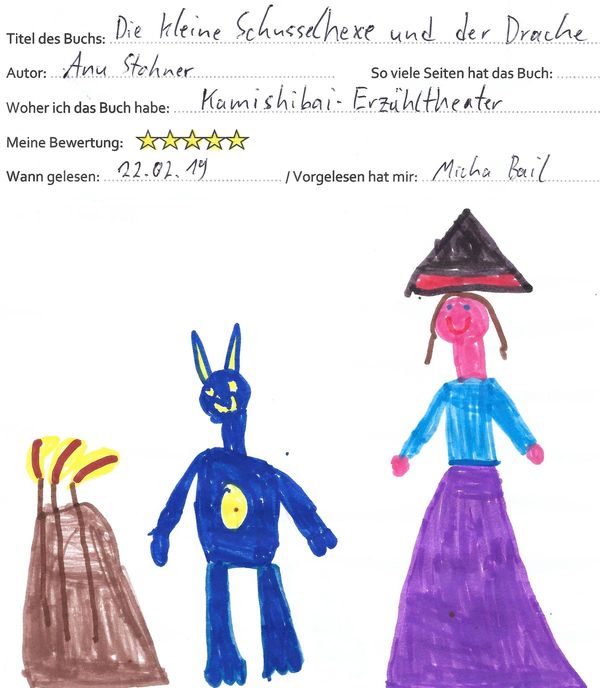 Titel des Buchs: Die kleine Schusselhexe und der Drache
Autor: Anu Stohner So viele Seiten hat das Buch:
Woher ich das Buch habe: Kamishibai-Erzähltheater
Meine Bewertung:
Wann gelesen: 22.02.19 / Vorgelesen hat mir: Micha Bail